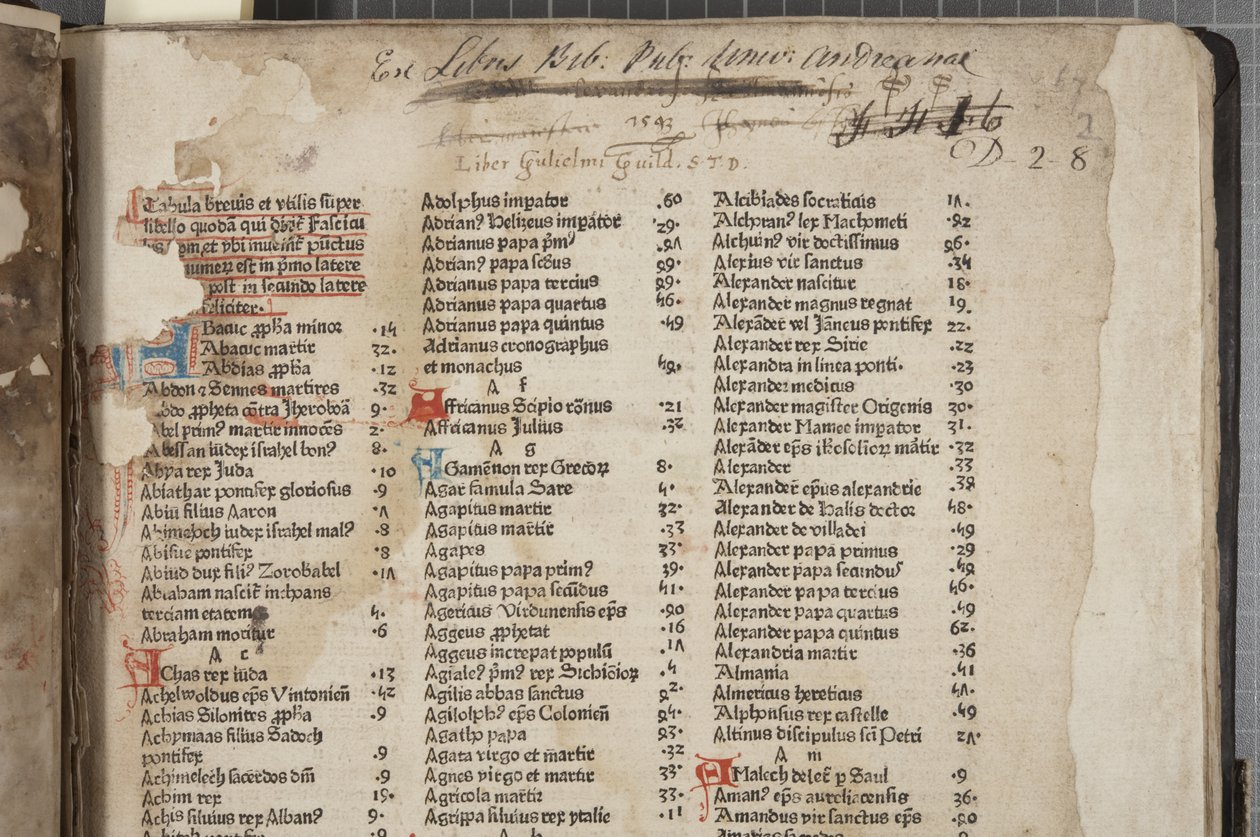 Ex Libris Bib: Pub: Univ: Andreanae
1593
Liber Gulielmi Guild. S. T. D.
D - 2 - 8
2
Tabula breuis et vtilis super
libello quodā qui dicit Fascicu
om et vbi inueīt pūctus
numerꝝ est in p̄mo latere
post in secundo latere
feliciter.
Bacuc ꝓpha minor .14
Abacuc martir 32.
Abdias ꝓpha .12
Abdon ⁊ Sennes martires .32
bdo ꝓpheta cōtra Jheroboā 9.
bel prim⁹ martir innocēs 2.
Abessan iudex israhel bon⁹ 8.
Abya rex Juda .10
Abiathar pontifex gloriosus .9
Abiu filius Aaron .Λ
Abimelech iudex israhel mal⁹ .8
Abisue pontifex .8
Abiud dux fili⁹ Zorobabel .1Λ
Abraham nascit inchoans
terciam etatem 4.
Abraham moritur .6
A c
AChas rex iuda .13
Achelwoldus ep̄s Vintonień .42
Achias Silonites ꝓpha .9
Achymaas filius Sadoch
pontifex .9
Achimelech sacerdos dn̄i .9
Achim rex 19.
Achis siluius rex Alban⁹ 9.
Adolphus impator .60
Adrian⁹ Helizeus impator 29.
Adrianus papa pm⁹ .ꝯΛ
Adrian⁹ papa scd̄us ꝯ9.
Adrianus papa tercius ꝯ9.
Adrianus papa quartus 46.
Adrianus papa quintus .49
Adrianus cronographus
et monachus 49.
A f
Affricanus Scipio rōnus .21
Affricanus Julius .32
A g
AGamēnon rex Grecorꝝ 8.
Agar famula Sare 4.
Agapitus martir 32.
Agapitus martir .33
Agapes 33.
Agapitus papa prim⁹ 39.
Agapitus papa secūdus 41.
Agericus Virdunensis ep̄s .ꝯ0
Aggeus ꝓphetat .16
Aggeus increpat populū .1Λ
Agiale⁹ pm⁹ rex Sichioīorꝝ .4
Agilis abbas sanctus ꝯ2.
Agilolph⁹ ep̄s Colonień ꝯ4.
Agatho papa ꝯ3.
Agata virgo et martir .32
Agnes virgo et martir 33.
Agricola martir 33.
Agrippa siluius rex ytalie .11
A h
Alcibiades socraticus 1Λ.
Alchoran⁹ lex Machometi .ꝯ2
Alchuin⁹ vir doctissimus ꝯ6.
Alexius vir sanctus .34
Alexander nascitur 18.
Alexander magnus regnat 19.
Alexāder vel Jāneus pontifex 22.
Alexander rex Sirie .22
Alexandra in linea ponti. .23
Alexander medicus .30
Alexander magister Origenis 30.
Alexander Mamee impator 31.
Alexāder ep̄s iherosoliorꝝ martir .32
Alexander .33
Alexander ep̄us alexandrie .38
Alexander de Halis doctor 48.
Alexander de villadei .49
Alexander papa primus .29
Alexander papa secundus .49
Alexander papa tercius 46.
Alexander papa quartus .49
Alexander papa quintus 62.
Alexandria martir .36
Almania .41
Almericus hereticus 4Λ.
Alphonsus rex castelle .49
Altinus discipulus sc̄i Petri 2Λ.
A m
AMalech delet p Saul .9
Aman⁹ ep̄s aureliacensis 36.
Amandus vir sanctus ep̄s .ꝯ0